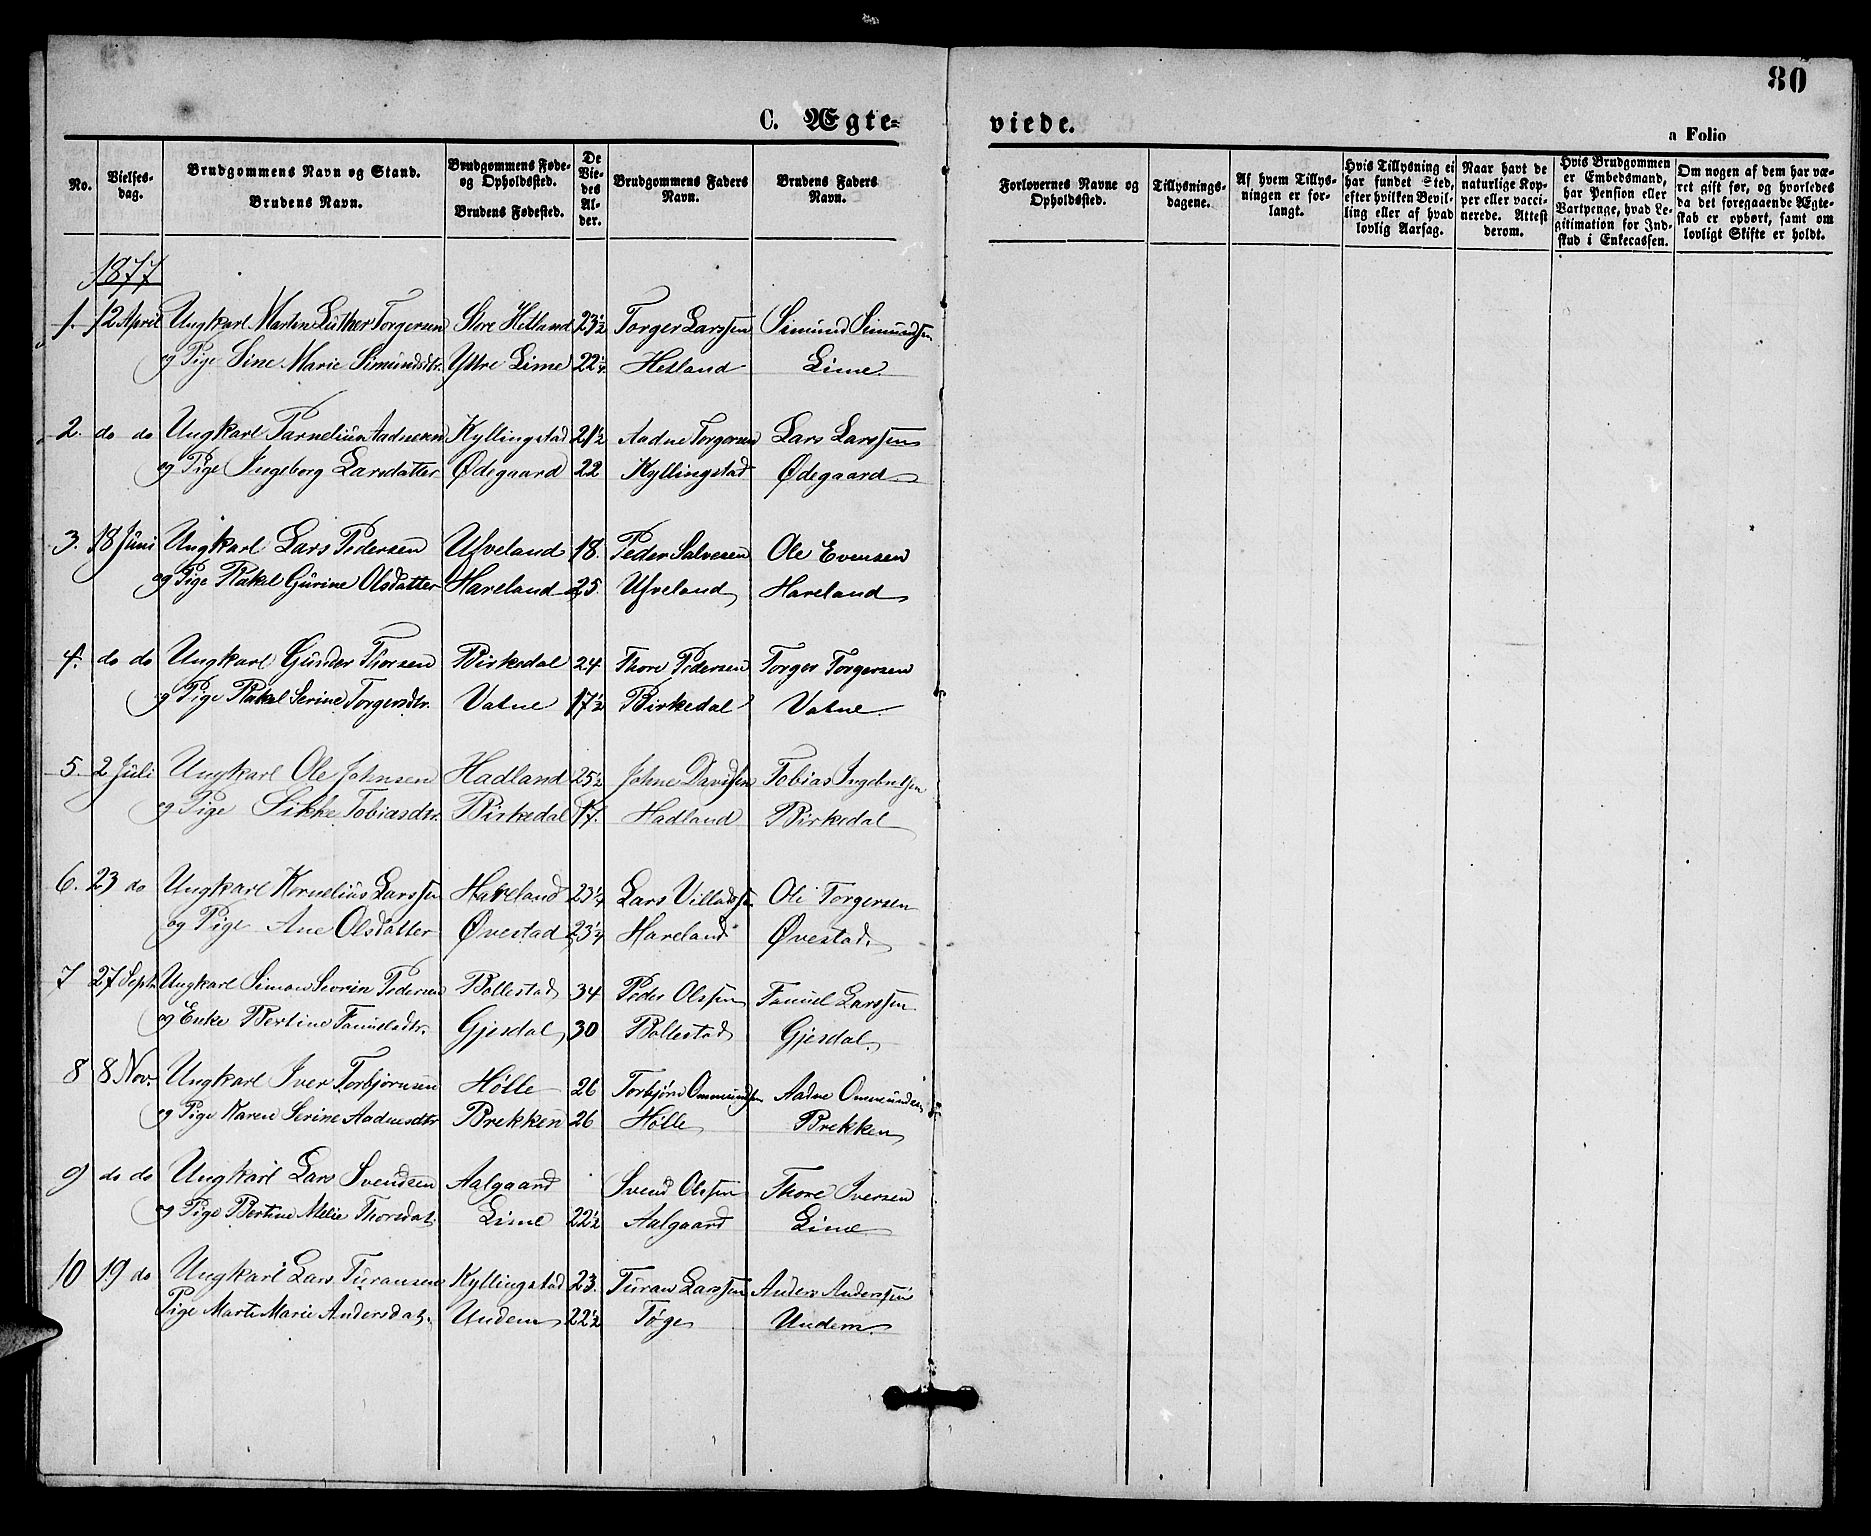 80
C. Ægte=
viede.
a Folio
No.
Vielses-
dag.
Brudgommens Navn og Stand.
Brudens Navn.
Brudgommens Føde-
og Opholdssted.
Brudens Fødested.
De
Vie-
des
Al-
der.
Brudgommens Faders
Navn.
Brudens Faders
Navn.
Forlovernes Navne og
Opholdssted.
Tillysnings-
dagene.
Af hvem Tillys-
ningen er for-
langt.
Hvis Tillysning ei
har fundet Sted,
efter hvilken Bevil-
ling eller af hvad
lovlig Aarsag.
Naar havt de
naturlige Kop-
per eller vacci-
nerede. Attest
derom.
Hvis Brudgommen
er Embedsmand,
har Pension eller
Vartpenge, hvad Le-
gitimation for Ind-
skud i Enkecassen.
Om nogen af dem har væ-
ret gift før, og hvorledes
da det foregaaende Ægte-
skab er ophørt, samt om
lovligt Skifte er holdt.
1877
1. 12 April Ungkarl Martin Luther Torgersen Store Hetland 23½ Torger Larssen Simund Simundsen
og Pige Sine Marie Simundsdtr. Yttre Lime 22¼ Hetland Lime.
2. do do Ungkarl Parnelius Aadnesen Kyllingstad 21½ Aadne Torgersen Lars Larssen
og Pige Ingeborg Larsdatter Ødegaard 22 Kyllingstad Ødegaard
3. 18 Juni Ungkarl Lars Pedersen Ufveland 18. Peder Salvesen Ole Evensen
og Pige Rakel Gurine Olsdatter Haveland 25. Ufveland Haveland
4. do do Ungkarl Gunder Thorsen Birkedal 24 Thore Pedersen Torger Torgersen
og Pige Rakel Serine Torgersdtr. Vatne 17½ Birkedal Vatne.
5. 2 Juli Ungkarl Ole Johnsen Hadland 25½ Johne Davidsen Tobias Ingebretsen
og Pige Sikke Tobiasdtr. Birkedal 17. Hadland Birkedal
6. 23 do Ungkarl Kornelius Larssen Haveland 23¼ Lars Villadssen Ole Torgersen
og Pige Ane Olsdatter Øvestad 23¼ Haveland Øvestad.
7 27 Septr. Ungkarl Simon Severin Pedersen Bollestad 34 Peder Olssen Famuel Larssen
og Enke Bertine Famuelsdtr. Gjesdal 30 Bollestad Gjesdal.
8 8 Nov. Ungkarl Iver Torbjørnsen Hölle 26 Torbjörn Ommundsen Aadne Ommundsen
og Pige Karen Serine Aadnesdtr Brekken 26 Hölle Brekken
9 do do Ungkarl Lars Svendsen Aalgaard Svend Olssen Thore Iversen
og Pige Bertine Thorsdat. Lime 22½ Aalgaard Lime
10 19 do Ungkarl Lars Turansen Kyllingstad 23. Turan Larssen Anders Anderssen
Pige Marte Marie Andersdat. Undem 22½ Töge Undem.